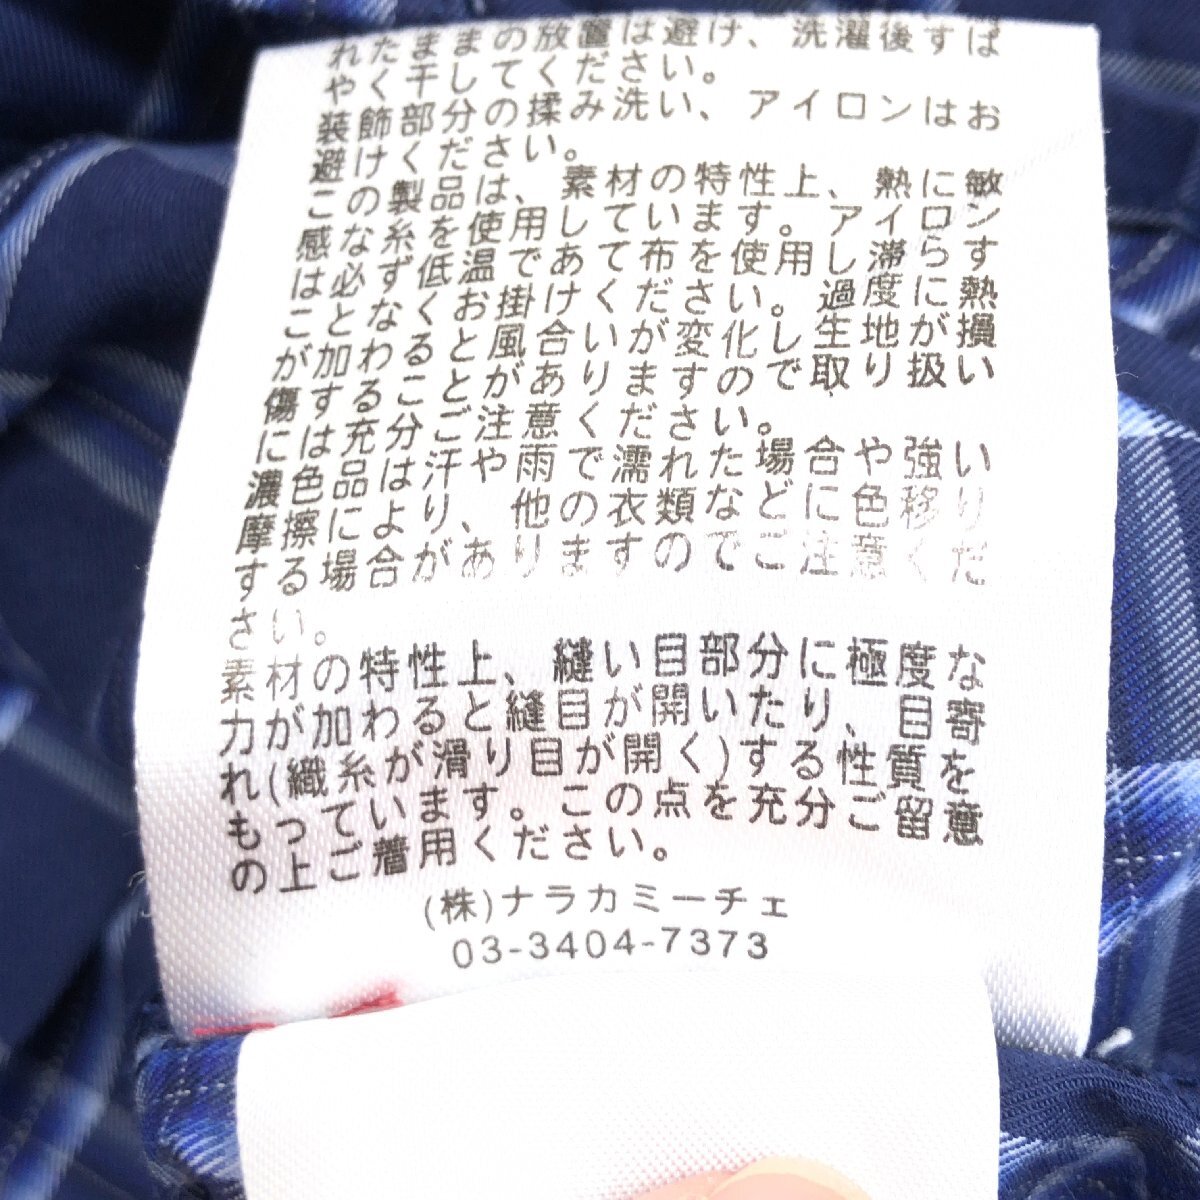 れたままの放置は避け、洗濯後すば
やく干してください。
装飾部分の揉み洗い、アイロンはお
避けください。
この製品は、素材の特性上、熱に敏
感な糸を使用しています。アイロン
は必ず低温であて布を使用し滞らす
ことなくお掛けください。過度に熱
が加わると風合いが変化し生地が損
傷することがありますので取り扱い
には充分ご注意ください。
濃色品は汗や雨で濡れた場合や強い
摩擦により、他の衣類などに色移り
する場合がありますのでご注意くだ
さい。
素材の特性上、縫い目部分に極度な
力が加わると縫目が開いたり、目寄
れ(織糸が滑り目が開く)する性質を
もっています。この点を充分ご留意
の上ご着用ください。
(株)ナラカミーチェ
03-3404-7373